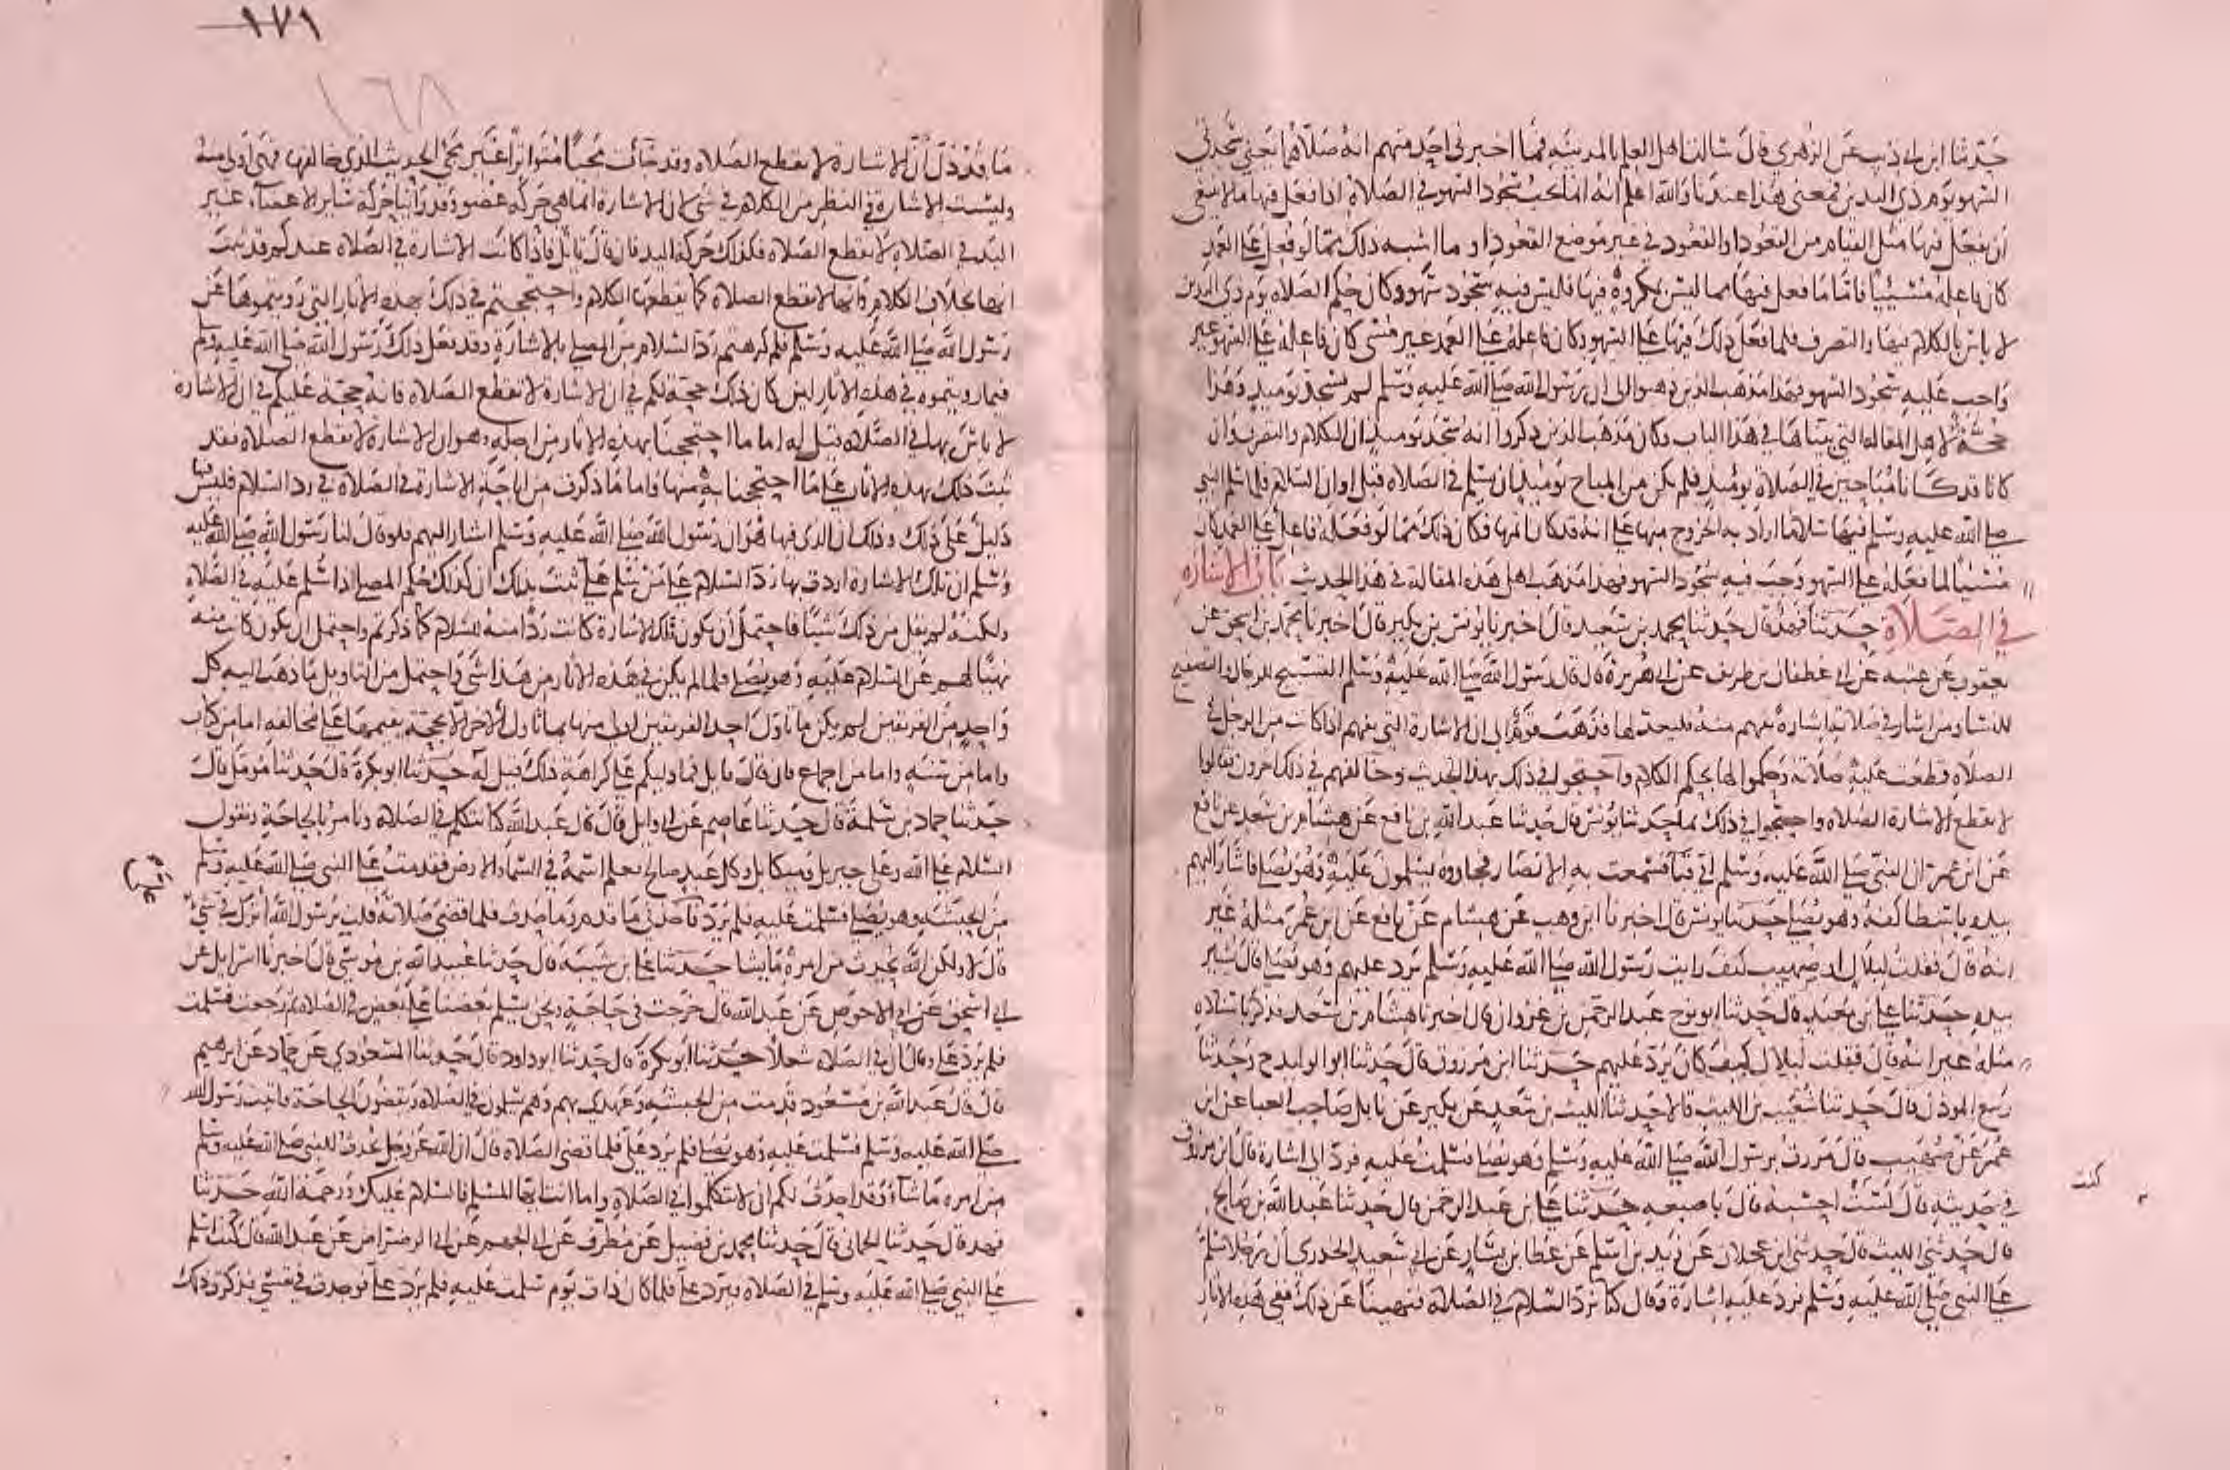 حدثنا ابن ابي ذئب عن الزهري قال سالنا اهل العلم بالمدينة فما اخبرني احد منهم انه صلاهما يعني سجدتي
السهو يوم ذي اليدين فمعنى هذا عندنا والله اعلم انه انما يجب سجود السهو في الصلاة اذا فعل فيها ما لا ينبغي
ان يفعل فيها مثل القيام من القعود او القعود في غير موضع القعود او ما اشبه ذلك مما لو فعل على العمد
كان فاعله مسيئا فاما ما فعل فيها مما ليس بمكروه فيها فليس فيه سجود سهو وكان حكم الصلاة يوم ذي اليدين
لا باس بالكلام فيها والتصرف فلما فعل ذلك فيها على السهو وكان فاعله على العمد غير مسي كان فاعله على السهو غير
واجب عليه سجود السهو فهذا مذهب الذين ذهبوا الى ان رسول الله صلى الله عليه وسلم لم يسجد يوميذ وهذا
حجة لاهل المقالة التي بيناها في هذا الباب وكان مذهب الذين ذكروا انه سجد يوميذ ان الكلام والتصرف وان
كانا قد كانا مباحين في الصلاة يوميذ فلم يكن من المباح يوميذ ان يسلم في الصلاة قبل اوان السلام فلما سلم النبي
صلى الله عليه وسلم فيها سلاما اراد به الخروج منها على انه قد كان اتمها فكان ذلك مما لو فعله فاعل على العمد كان
مسيئا لما فعله على السهو وجب فيه سجود السهو فهذا مذهب اهل هذه المقالة في هذا الحديث باب الاشارة
في الصلاة حدثنا فهد قال حدثنا محمد بن سعيد قال اخبرنا يونس بن بكير قال اخبرنا محمد بن اسحق عن
يعقوب عن عتبة عن ابي غطفان بن طريف عن ابي هريرة قال قال رسول الله صلى الله عليه وسلم التسبيح للرجال والتصفيح
للنساء ومن اشار في صلاته اشارة تفهم منه فليعدها فذهب قوم الى ان الاشارة التي تفهم اذا كانت من الرجل في
الصلاة قطعت عليه صلاته وحكموا لها بحكم الكلام واحتجوا في ذلك بهذا الحديث وخالفهم في ذلك اخرون فقالوا
لا تقطع الاشارة الصلاة واحتجوا في ذلك بما حدثنا يونس قال حدثنا عبد الله بن نافع عن هشام بن سعد عن نافع
عن ابن عمر ان النبي صلى الله عليه وسلم اتى قبا فسمعت به الانصار فجاوه يسلمون عليه وهو يصلي فاشار اليهم
بيده باسطا كفه وهو يصلي حدثنا يونس قال اخبرنا ابن وهب عن هشام عن نافع عن ابن عمر مثله غير
انه قال فقلت لبلال او صهيب كيف رايت رسول الله صلى الله عليه وسلم يرد عليهم وهو يصلي قال يشير
بيده حدثنا علي بن معبد قال حدثنا ابو نوح عبد الرحمن بن غزوان قال اخبرنا هشام بن سعد فذكر باسناده
مثله غير انه قال فقلت لبلال كيف كان يرد عليهم حدثنا ابن مرزوق قال حدثنا ابو الوليد ح وحدثنا
ربيع الموذن قال حدثنا شعيب بن الليث قالا حدثنا الليث بن سعد عن بكير عن نابل صاحب العبا عن ابن
عمر عن صهيب قال مررت برسول الله صلى الله عليه وسلم وهو يصلي فسلمت عليه فرد الي اشارة قال ابن مرزوق
في حديثه قال ليث احسبه قال باصبعه حدثنا علي بن عبد الرحمن قال حدثنا عبد الله بن صالح
قال حدثني الليث قال حدثني ابن عجلان عن زيد بن اسلم عن عطا بن يسار عن ابي سعيد الخدري ان رجلا سلم
على النبي صلى الله عليه وسلم فرد عليه اشارة وقال كنا نرد السلام في الصلاة فنهينا عن ذلك ففي هذه الاثار
١٧١
١٦٨
ما قد دل ان الاشارة لا تقطع الصلاة وقد جات مجيا متواترا غير مجي الحديث الذي خالفها فهي اولى منه
وليست الاشارة في النظر من الكلام في شي لان الاشارة انما هي حركة عضو وقد راينا حركة سائر الاعضاء غير
اليد في الصلاة لا تقطع الصلاة فكذلك حركة اليد فان قال قائل فاذا كانت الاشارة في الصلاة عندكم قد ثبت
انها بخلاف الكلام وانها لا تقطع الصلاة كما يقطعها الكلام واحتججتم في ذلك بهذه الاثار التي رويتموها عن
رسول الله صلى الله عليه وسلم فلم كرهتم رد السلام من المصلي بالاشارة وقد فعل ذلك رسول الله صلى الله عليه وسلم
فيما رويتموه في هذه الاثار لين كان ذلك حجة لكم في ان الاشارة لا تقطع الصلاة فانه حجة عليكم في ان الاشارة
لا باس بها في الصلاة قيل له اما ما احتججنا بهذه الاثار من اجله وهو ان الاشارة لا تقطع الصلاة فقد
ثبت ذلك بهذه الاثار على ما احتججنا به منها واما ما ذكرت من اباحة الاشارة في الصلاة في رد السلام فليس فيها
دليل على ذلك وذلك ان الذي فيها هو ان رسول الله صلى الله عليه وسلم اشار اليهم فلو قال لنا رسول الله صلى الله عليه
وسلم ان تلك الاشارة اردت بها رد السلام على من سلم علي ثبت بذلك ان كذلك حكم المصلي اذا سلم عليه في الصلاة
ولكنه لم يقل من ذلك شيئا فاحتمل ان يكون تلك الاشارة كانت ردا منه للسلام كما ذكرتم واحتمل ان يكون كانت منه
نهيا لهم عن السلام عليه وهو يصلي فلما لم يكن في هذه الاثار من هذا شي واحتمل من التاويل ما ذهب اليه كل
واحد من الفريقين لم يكن ما تاول احد الفريقين اولى منها بما تاول الاخر الا بحجة يقيمها على مخالفه اما من كتاب
واما من سنة واما من اجماع فان قال قايل فما دليلكم على كراهة ذلك قيل له حدثنا ابو بكرة قال حدثنا مومل قال
حدثنا حماد بن سلمة قال حدثنا عاصم عن ابي وايل قال قال عبد الله كنا نتكلم في الصلاة ونامر بالحاجة ونقول
السلام على الله وعلى جبريل وميكايل وكل عبد صالح نعلم اسمه في السماء والارض فقدمت على النبي صلى الله عليه وسلم
من الحبشة وهو يصلي فسلمت عليه فلم يرد فاخذني ما قدم وما حدث فلما قضى صلاته قلت يرسول الله انزل في شي
قال لا ولكن الله يحدث من امره ما يشا حدثنا علي بن شيبة قال حدثنا عبيد الله بن موسى قال اخبرنا اسرايل عن
ابي اسحق عن ابي الاحوص عن عبد الله قال خرجت في حاجة ونحن يسلم بعضنا على بعض في الصلاة ثم رجعت فسلمت
فلم يرد علي وقال ان في الصلاة شغلا حدثنا ابو بكرة قال حدثنا ابو داود قال حدثنا المسعودي عن حماد عن ابرهيم
قال قال عبد الله بن مسعود قدمت من الحبشة وعهدي بهم وهم يسلمون في الصلاة ويقضون الحاجة فاتيت رسول الله
صلى الله عليه وسلم فسلمت عليه وهو يصلي فلم يرد علي فلما قضى الصلاة قال ان الله عز وجل يحدث للنبي صلى الله عليه وسلم
من امره ما شاء وقد احدث لكم ان لا تتكلموا في الصلاة واما انت ايها المسلم فالسلام عليك ورحمة الله حدثنا
فهد قال حدثنا الحماني قال حدثنا محمد بن فضيل عن مطرف عن ابي الجهم عن ابي الرضراض عن عبد الله قال كنت اسلم
على النبي صلى الله عليه وسلم في الصلاة فيرد علي فلما كان ذات يوم سلمت عليه فلم يرد علي فوجدت في نفسي فذكرت ذلك